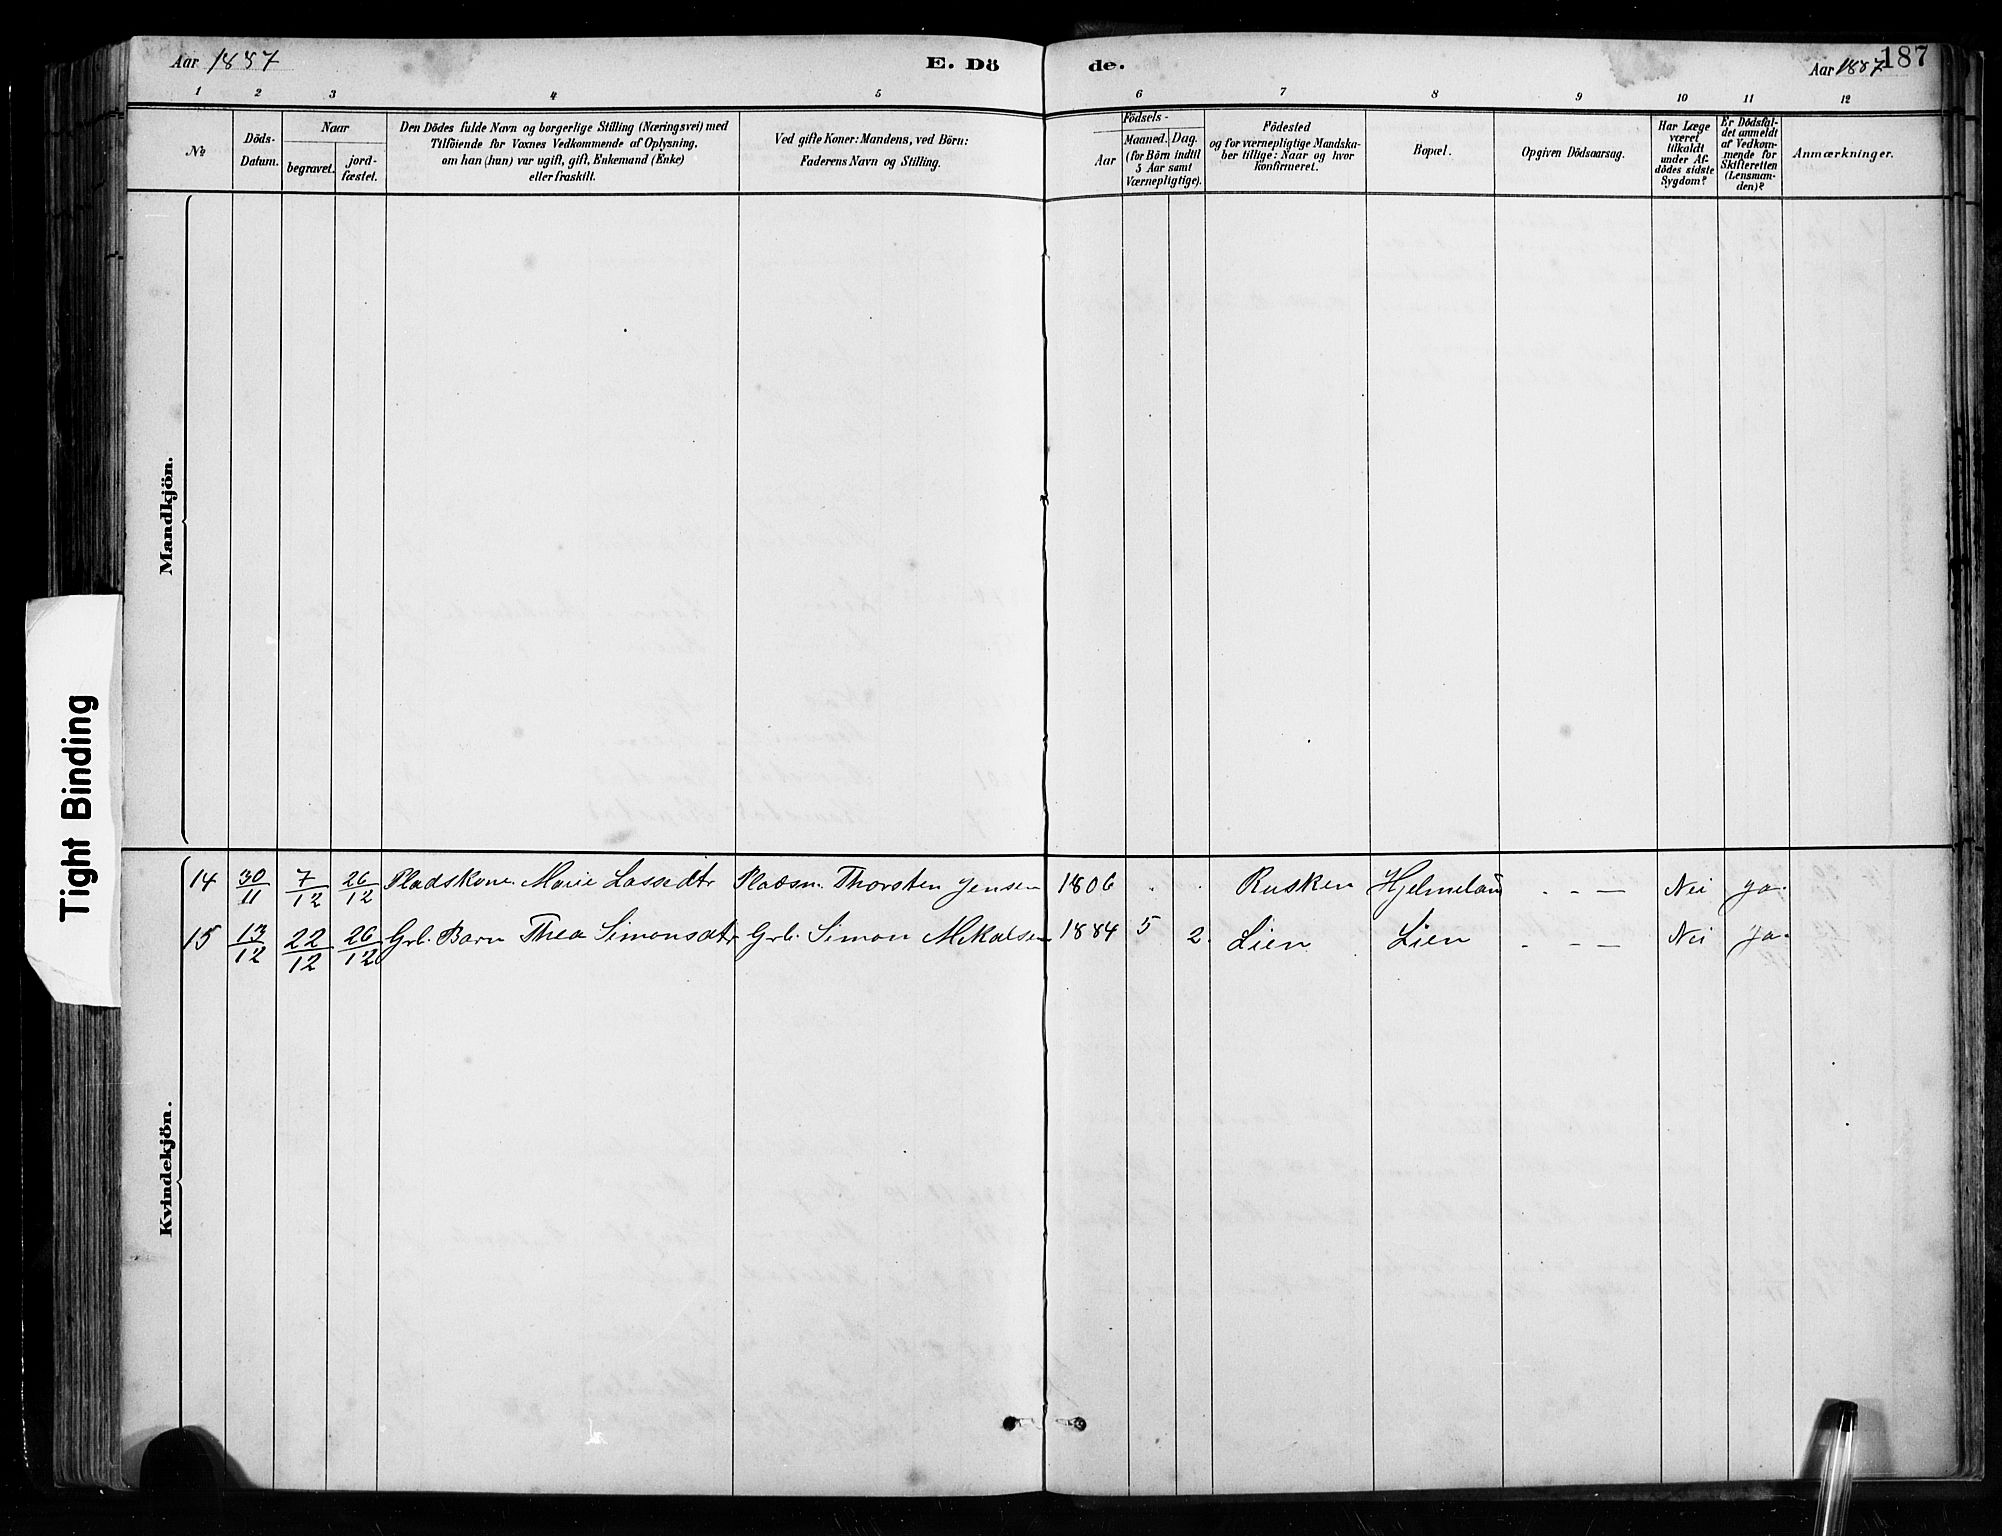 Aar 1887
E. Dö
de.
Aar 1887
187
1 2 3 4 5 6 7 8 9 10 11 12
№
Döds-
Datum.
Naar
begravet.
jord-
fæstet.
Den Dödes fulde Navn og borgerlige Stilling (Næringsvei) med
Tilföiende for Voxnes Vedkommende af Oplysning,
om han (hun) var ugift, gift, Enkemand (Enke)
eller fraskilt.
Ved gifte Koner: Mandens, ved Börn:
Faderens Navn og Stilling.
Födsels-
Aar
Maaned. Dag.
(for Börn indtil
5 Aar samt
Værnepligtige).
Födested
og for værnepligtige Mandska-
ber tillige: Naar og hvor
konfirmeret.
Bopæl.
Opgiven Dödsaarsag.
Har Læge
været
tilkaldt
under Af-
dödes sidste
Sygdom?
Er Dödsfal-
det anmeldt
af Vedkom-
mende for
Skifteretten
(Lensman-
den)?
Anmærkninger.
Mandkjön.
14 30/11 7/12 26/12 Pladskone Marie Lassedtr Pladsm. Thorsten Jensen 1806 . . Rusken Hjelmeland - - - Nei ja.
15 13/12 22/12 26/12 Grb. Barn Thea Simonsdtr Grb. Simon Mikalsen 1884 5 2. Lien Lien - - - Nei ja.
Kvindekjön.
Tight Binding